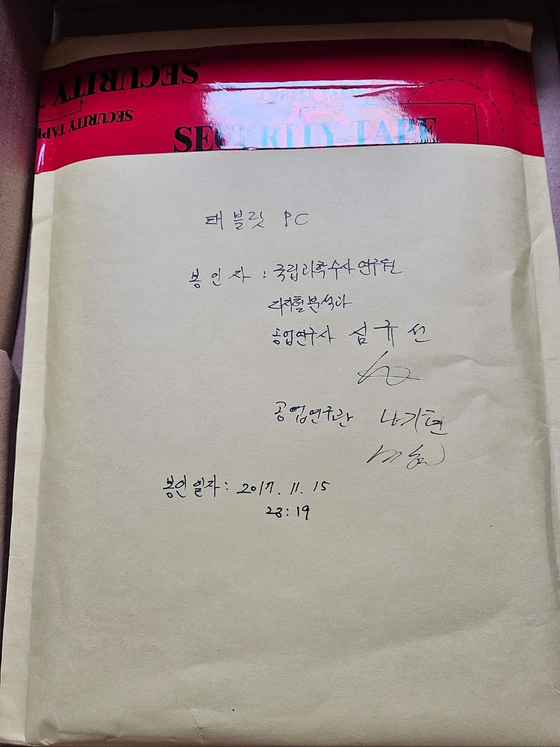 SECURITY TAPE
SECURITY
SECURITY TAPE
SECURITY TAPE
태블릿 PC
봉인자 : 국립과학수사연구원
디지털분석과
공업연구사 심규선
공업연구관 나기현
봉인일자 : 2017. 11. 15
23:19